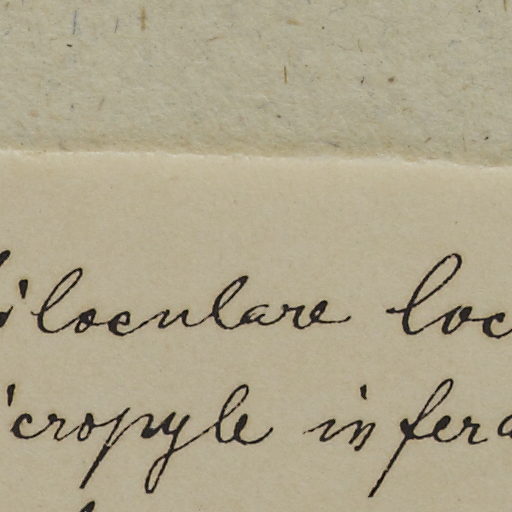 iloculare loc
icropyle infera